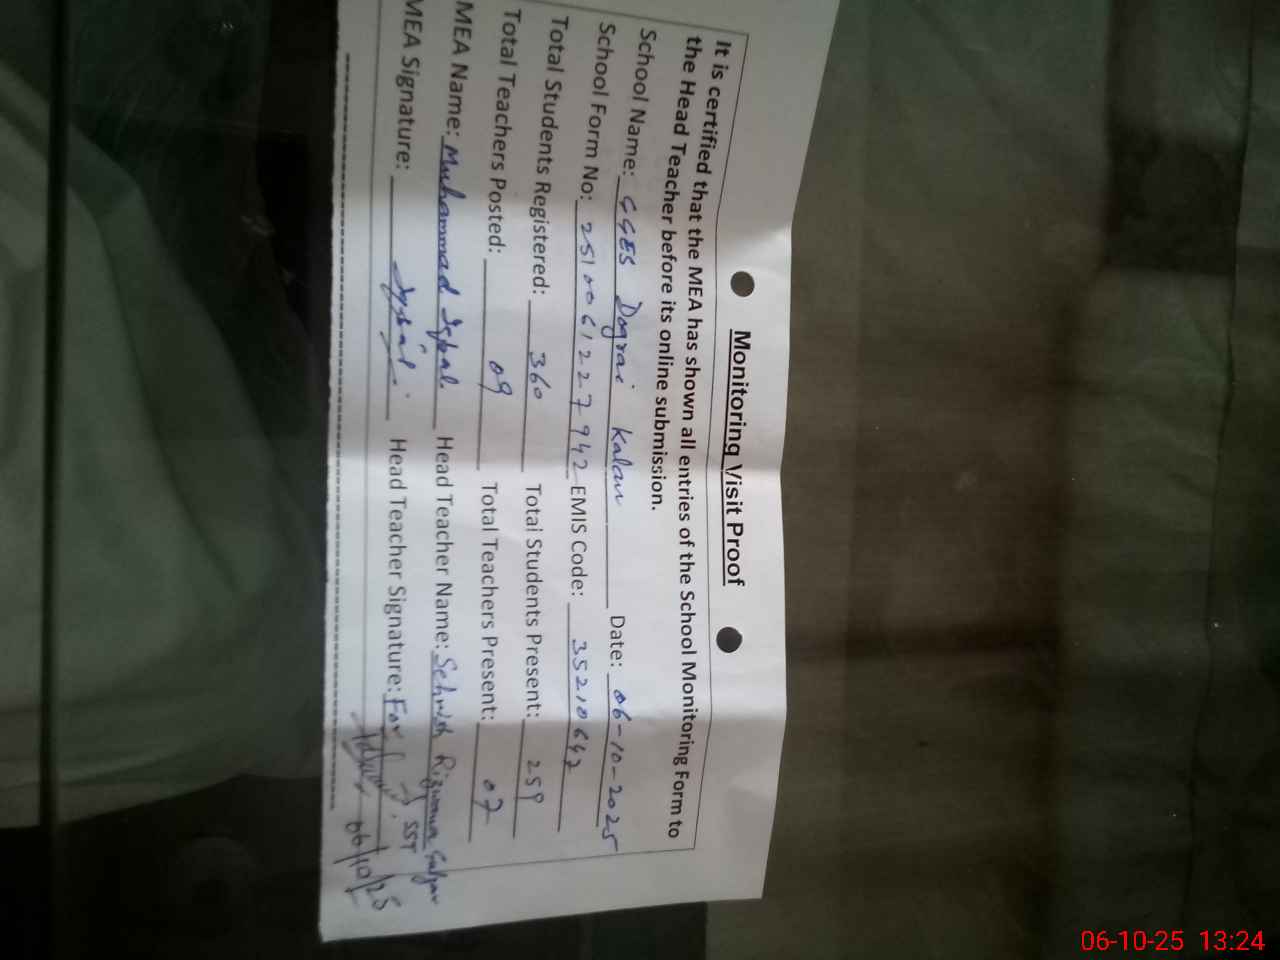 Monitoring Visit Proof
It is certified that the MEA has shown all entries of the School Monitoring Form to
the Head Teacher before its online submission.
School Name: GGES Dograi Kalan Date: 06-10-2025
School Form No: 2510061227942 EMIS Code: 35210647
Total Students Registered: 360 Total Students Present: 259
Total Teachers Posted: 09 Total Teachers Present: 07
MEA Name: Muhammad Iqbal Head Teacher Name: Sehrish Rizwana
MEA Signature: Iqbal Head Teacher Signature: For SST
06/10/25
06-10-25 13:24